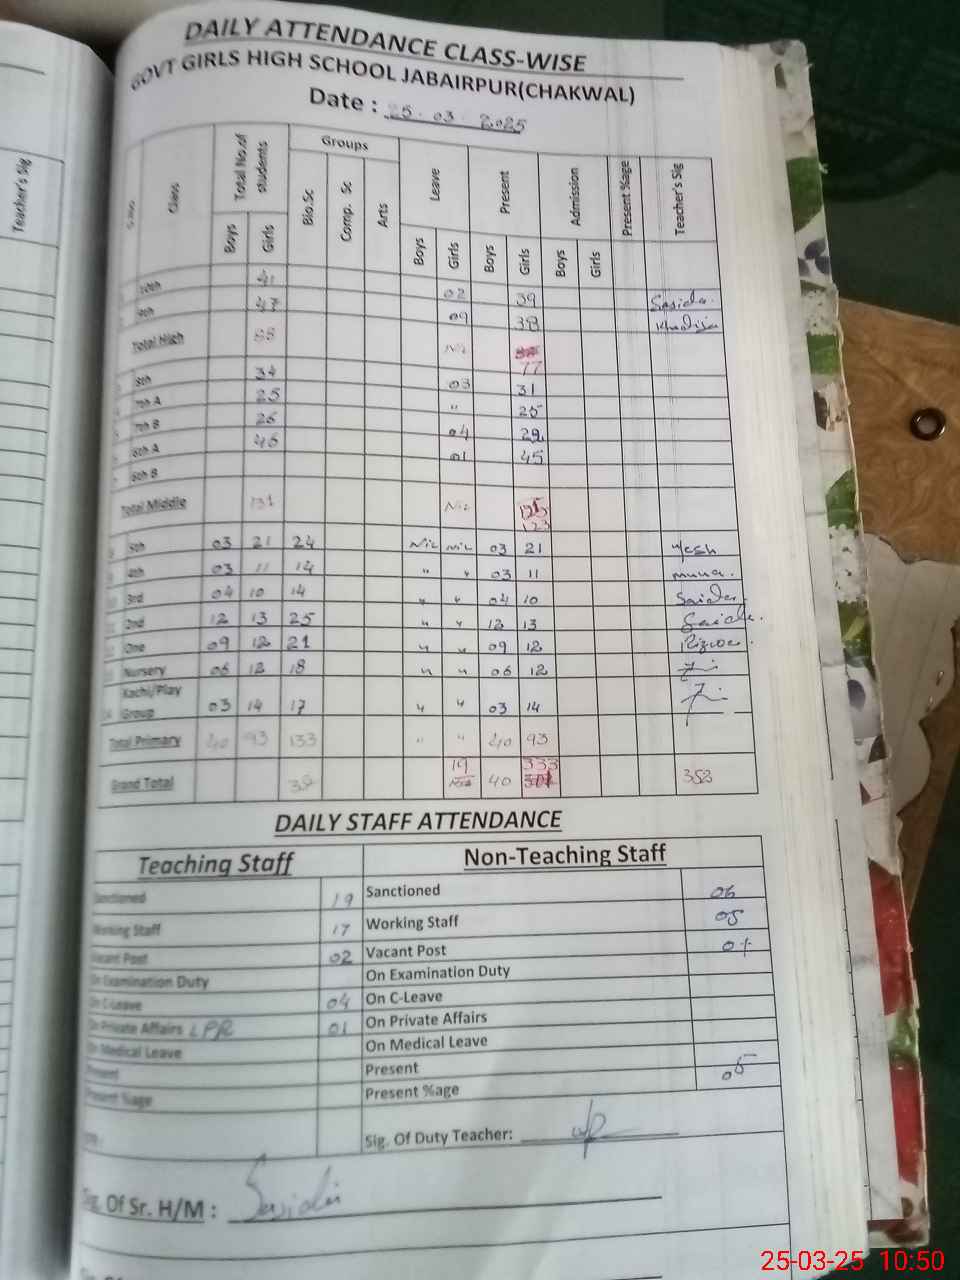 Teacher's Sig
DAILY ATTENDANCE CLASS-WISE
GOVT GIRLS HIGH SCHOOL JABAIRPUR(CHAKWAL)
Date : 25.03.2025
Class Total No.of students Groups Leave Present Admission Present %age Teacher's Sig
Boys Girls Bio.Sc Comp. Sc Arts Boys Girls Boys Girls Boys Girls
10th 41 02 39
9th 47 09 38 Khadija
Total High 88 Nil 77
8th 34 03 31
7th A 25 " 25
7th B 26 04
6th A 46 01 45
6th B
Total Middle 131 Nil 125 123
5th 03 21 24 Nil Nil 03 21
4th 03 11 14 " " 03 11 muna.
3rd 04 10 14 " " 04 10
2nd 12 13 25 " " 12 13
One 09 12 21 " " 09 12
Nursery 06 12 18 " " 06 12
Kachi/Play Group 03 14 17 " " 03 14
Total Primary 40 93 133 " " 40 93
Grand Total 19 40 333 353
DAILY STAFF ATTENDANCE
Teaching Staff Non-Teaching Staff
Sanctioned 19 Sanctioned 06
Working Staff 17 Working Staff 05
Vacant Post 02 Vacant Post 01
On Examination Duty On Examination Duty
On C-Leave 04 On C-Leave
On Private Affairs LPR 01 On Private Affairs
On Medical Leave On Medical Leave
Present Present 05
Present %age Present %age
Sig. Of Duty Teacher:
Sig. Of Sr. H/M :
25-03-25 10:50